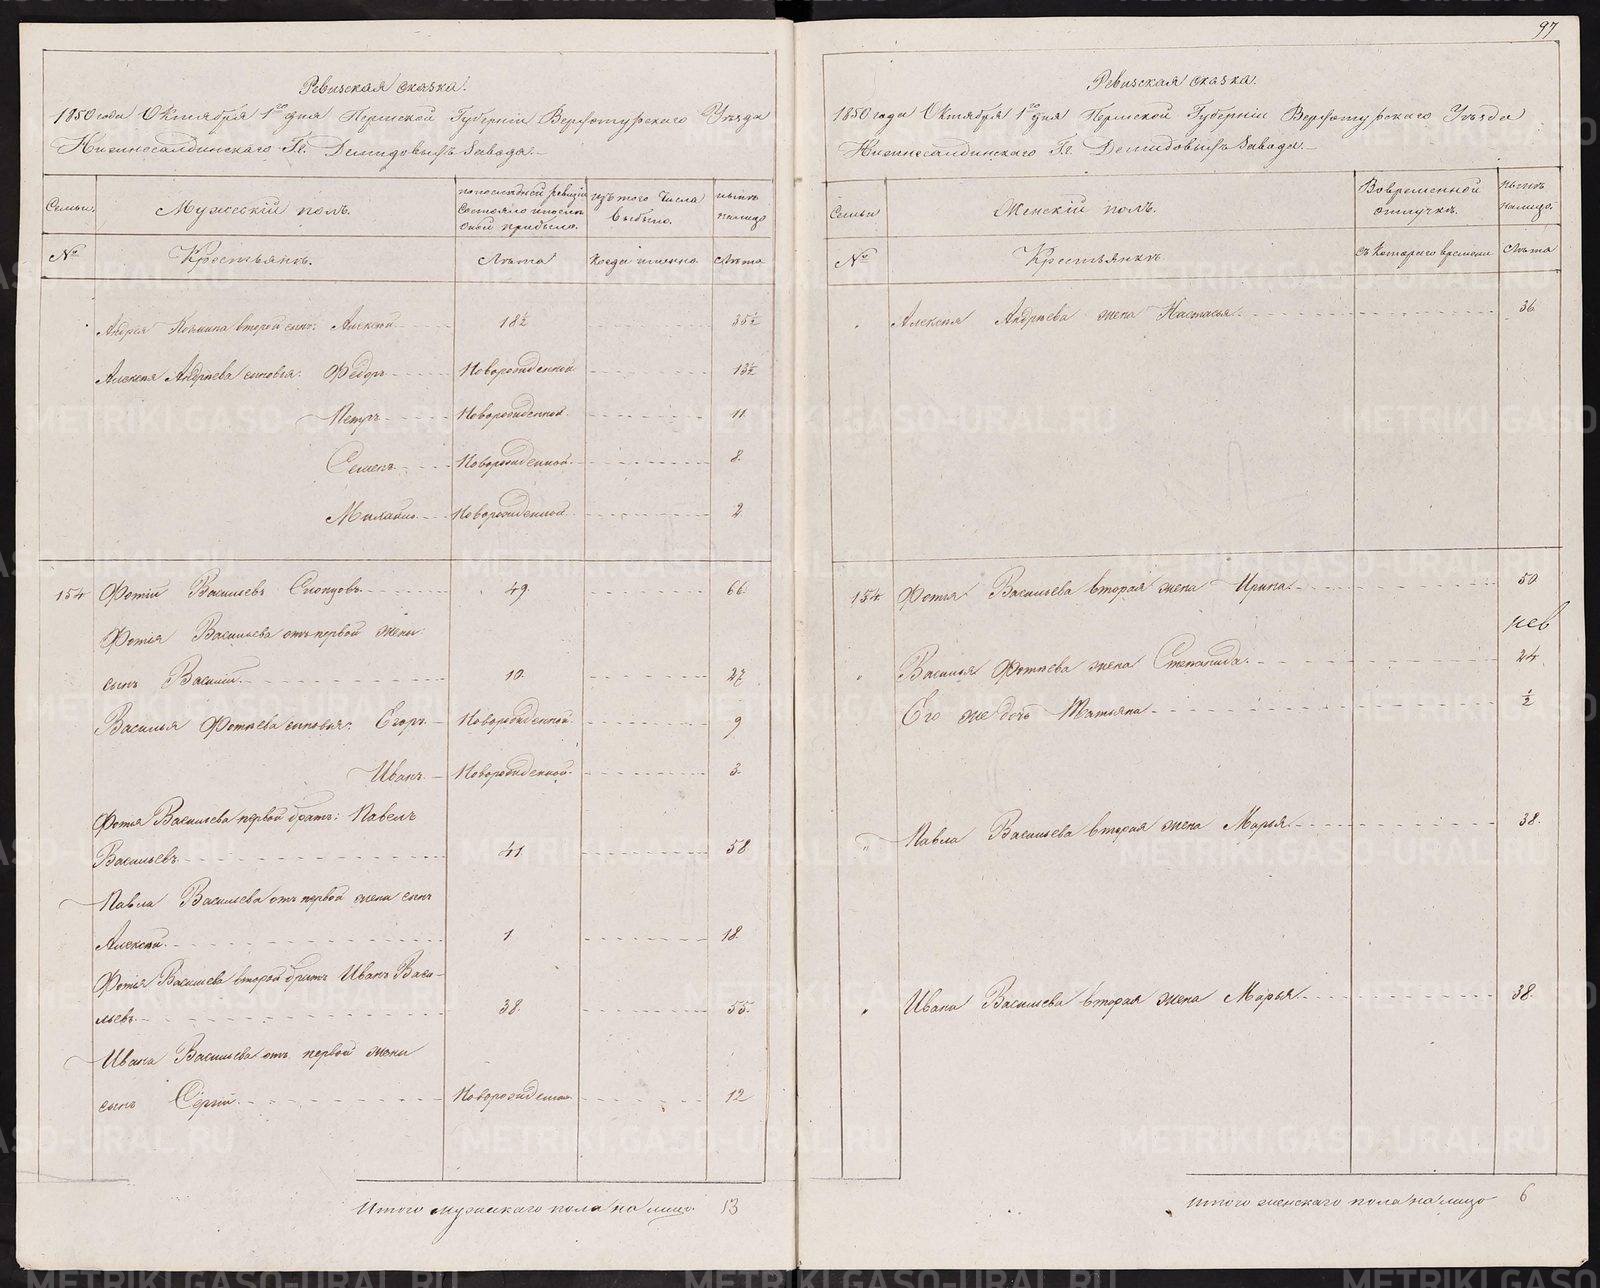 97
Ревизская сказка.
1850 года Октября 1го дня Пермской Губернiи Верхотурскаго Уѣзда
Нижнесалдинскаго Гг. Демидовыхъ завода.
Семьи.
Мужескiй полъ.
по последней ревизiи состояло и после оной прибыло.
изъ того числа выбыло.
нынѣ налицо
№
Крестьянъ.
Лѣта
Когда именно
Лѣта
Андрея второй сынъ: Алексѣй 18½ 35½
Алексѣя Андрѣева сыновья: Федоръ Новорожденной 13½
Петръ Новорожденной 11
Семенъ Новорожденной 8.
Михайло Новорожденной 2
154 Фотiй Васильевъ Скопцовъ 49. 66.
Фотiя Васильева отъ первой жены
сынъ Василiй. 10. 27
Василья Фотѣева сыновья: Егоръ Новорожденной 9
Иванъ Новорожденной 3.
Фотiя Васильева первой братъ: Павелъ
Васильевъ 41 58
Павла Васильева отъ первой жены сынъ
Алексѣй. 1 18.
Фотiя Васильева второй братъ Иванъ Васи-
льевъ 38. 55.
Ивана Васильева отъ первой жены
сынъ Сергiй Новорожденной 12
Итого мужескаго пола на лицо. 13
Ревизская сказка.
1850 года Октября 1го дня Пермской Губернiи Верхотурскаго Уѣзда
Нижнесалдинскаго Гг. Демидовыхъ завода.
Семьи
Женскiй полъ.
Во временной отлучкѣ.
нынѣ налицо.
№
Крестьянкъ
съ Котораго времени
Лѣта
Алексѣя Андрѣева жена Настасья 36
154 Фотiя Васильева вторая жена Ирина 50
Василья Фотѣева жена Степанида. 24
Его же дочь Татьяна ½
Павла Васильева вторая жена Марья 38.
Ивана Васильева вторая жена Марья 38.
Итого женскаго пола на лицо 6
METRIKI.GASO-URAL.RU